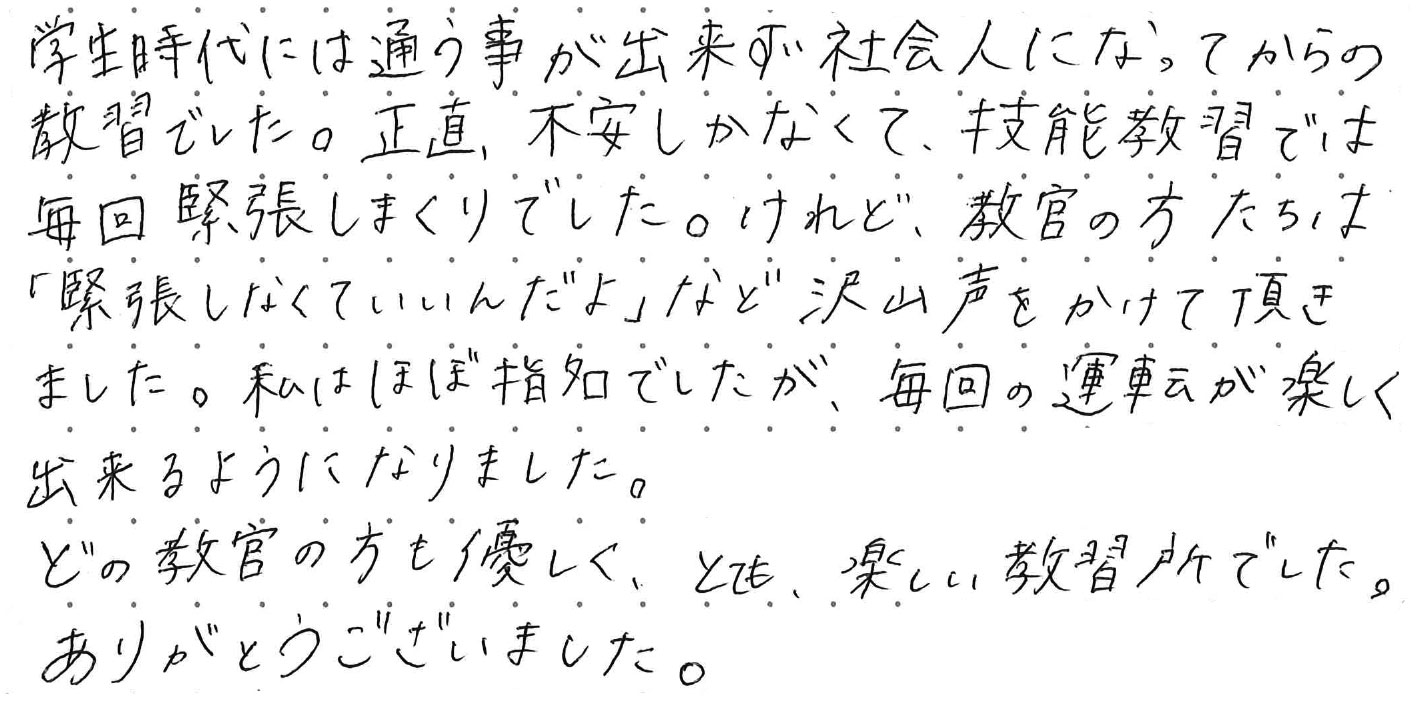 学生時代には通う事が出来ず社会人になってからの
教習でした。正直、不安しかなくて、技能教習では
毎回緊張しまくりでした。けれど、教官の方たちは
「緊張しなくていいんだよ」など沢山声をかけて頂き
ました。私はほぼ指名でしたが、毎回の運転が楽しく
出来るようになりました。
どの教官の方も優しく、とても、楽しい教習所でした。
ありがとうございました。